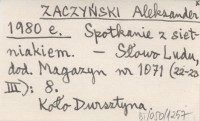 ZACZYŃSKI Aleksander
1980 e. Spotkanie z siet-
niakiem. — Słowo Ludu,
dod. Magazyn nr 1071 (22-23
III): 8.
Koło Dursztyna.
B1/050/1257